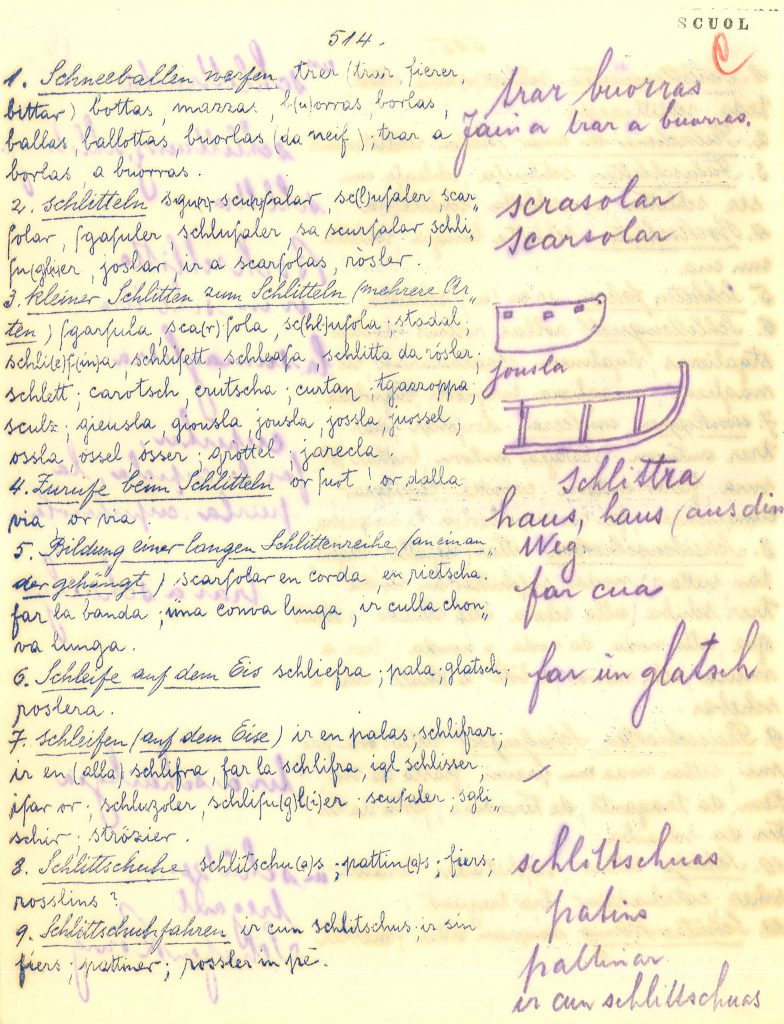 SCUOL
514.
1. Schneeballen werfen, trer (trar, fierer,
bittar) bottas, mazzas, b(u)orras, borlas,
ballas, ballottas, buorlas (da neif); trar a
borlas a buorras.
trar buorras
Jain a trar a buorras.
2. Schlitteln scurſalar, sc(l)uſaler, scar„
ſolar, ſgaſuler, schluſaler, sa scurſalar, schli„
ſu(gl)ier, joslar, ir a scarſolas, rösler.
scrasolar
scarsolar
3. Kleiner Schlitten zum Schlitteln (mehrere Ar„
ten) ſgarſula, sca(r)ſola, sc(hl)uſola; stadal;
schli(e)ſ(in)a schliſett, schleaſa, schlitta da rösler;
schlett; carotsch, crutscha; curtan, tgaeroppa,
sculz, gieusla, giousla, jousla, jossla, juossel,
ossla, össel össer; gröttel, jarecla
jousla
schlittra
4. Zurufe beim Schlitteln or ſuot! or dalla
via, or via
haus, haus (aus din
Weg
5. Bildung einer langen Schlittenreihe (aneinan„
der gehängt) scarſolar en corda, en rietscha.
far la banda; üna conva lunga, ir culla chon„
va lunga.
far cua
6. Schleife auf dem Eis schliefra; pala; glatsch;
roslera.
far ün glatsch
7. Schleifen (auf dem Eise) ir en palas; schlifrar,
ir en (alla) schlifra, far la schlifra, igl schlisser,
ifar or; schluzoler, schliſu(g)l(i)er; scuſaler; sgli„
schir; strözier.
8. Schlittschuhe schlitschu(a)s; pattin(a)s; fiers;
rosslins?
schlittschuas
patins
9. Schlittschuhfahren ir cun schlitschus; ir sin
fiers; pattiner; rossler in pè.
pattinar
ir cun schlittschuas